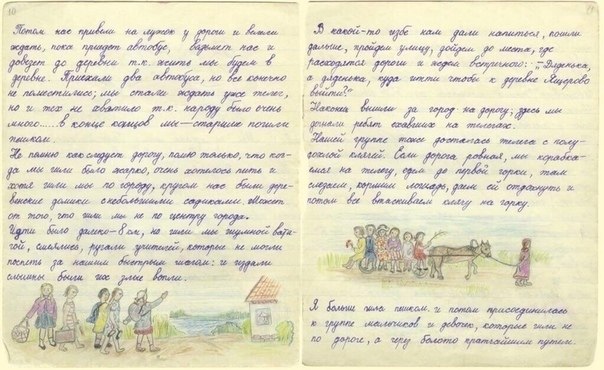 10
Потом нас привели на лужок у дороги и велели
ждать, пока придет автобус, возьмет нас и
довезет до деревни т.к. жить мы будем в
деревне. Приехали два автобуса, но все конечно
не поместились; мы стали ждать уже тех,
но и тех не хватило т.к. народу было очень
много..... в конце концов мы-старшие пошли
пешком.
Не помню как следует дорогу, помню только, что ког-
да мы шли было жарко, очень хотелось пить и
хотя шли мы по городу, кругом нас были дере-
венские домики с небольшими садиками. Может
от того, что шли мы не по центру города.
Идти было далеко-8 км, но шли мы шумной вата-
гой, смеялись, ругали учителей, которые не могли
поспеть за нашим быстрым шагом: и издали
слышны были их злые вопли.
В какой-то избе нам дали напиться, пошли
дальше, пройдем улицу, дойдем до места, где
расходятся дороги и ждем встречного: "Дяденька,
а дяденька, куда идти чтобы к деревне Ящерово
выйти?"
Наконец вышли за город на дорогу; здесь мы
догнали ребят ехавших на телегах.
Нашей группе тоже досталась телега с полу-
дохлой клячей. Если дорога ровная, мы карабка-
емся на телегу, едем до первой горки, там
слезаем, кормим лошадь, даем ей отдохнуть и
потом все втаскиваем клячу на горку.
Я больше шла пешком. и потом присоединилась
к группе мальчиков и девочек, которые шли не
по дороге, а через болото кратчайшим путем.